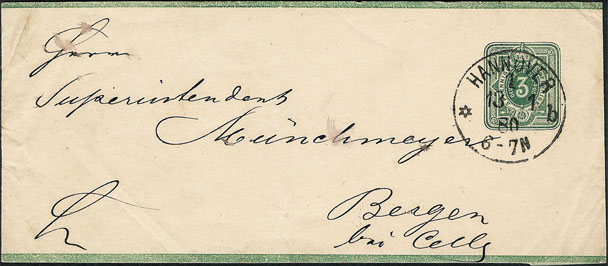 Herrn
Superintendent
Münchmeyer
Bergen
bei Celle
HANNOVER
3
13 1
80
b
6-7N